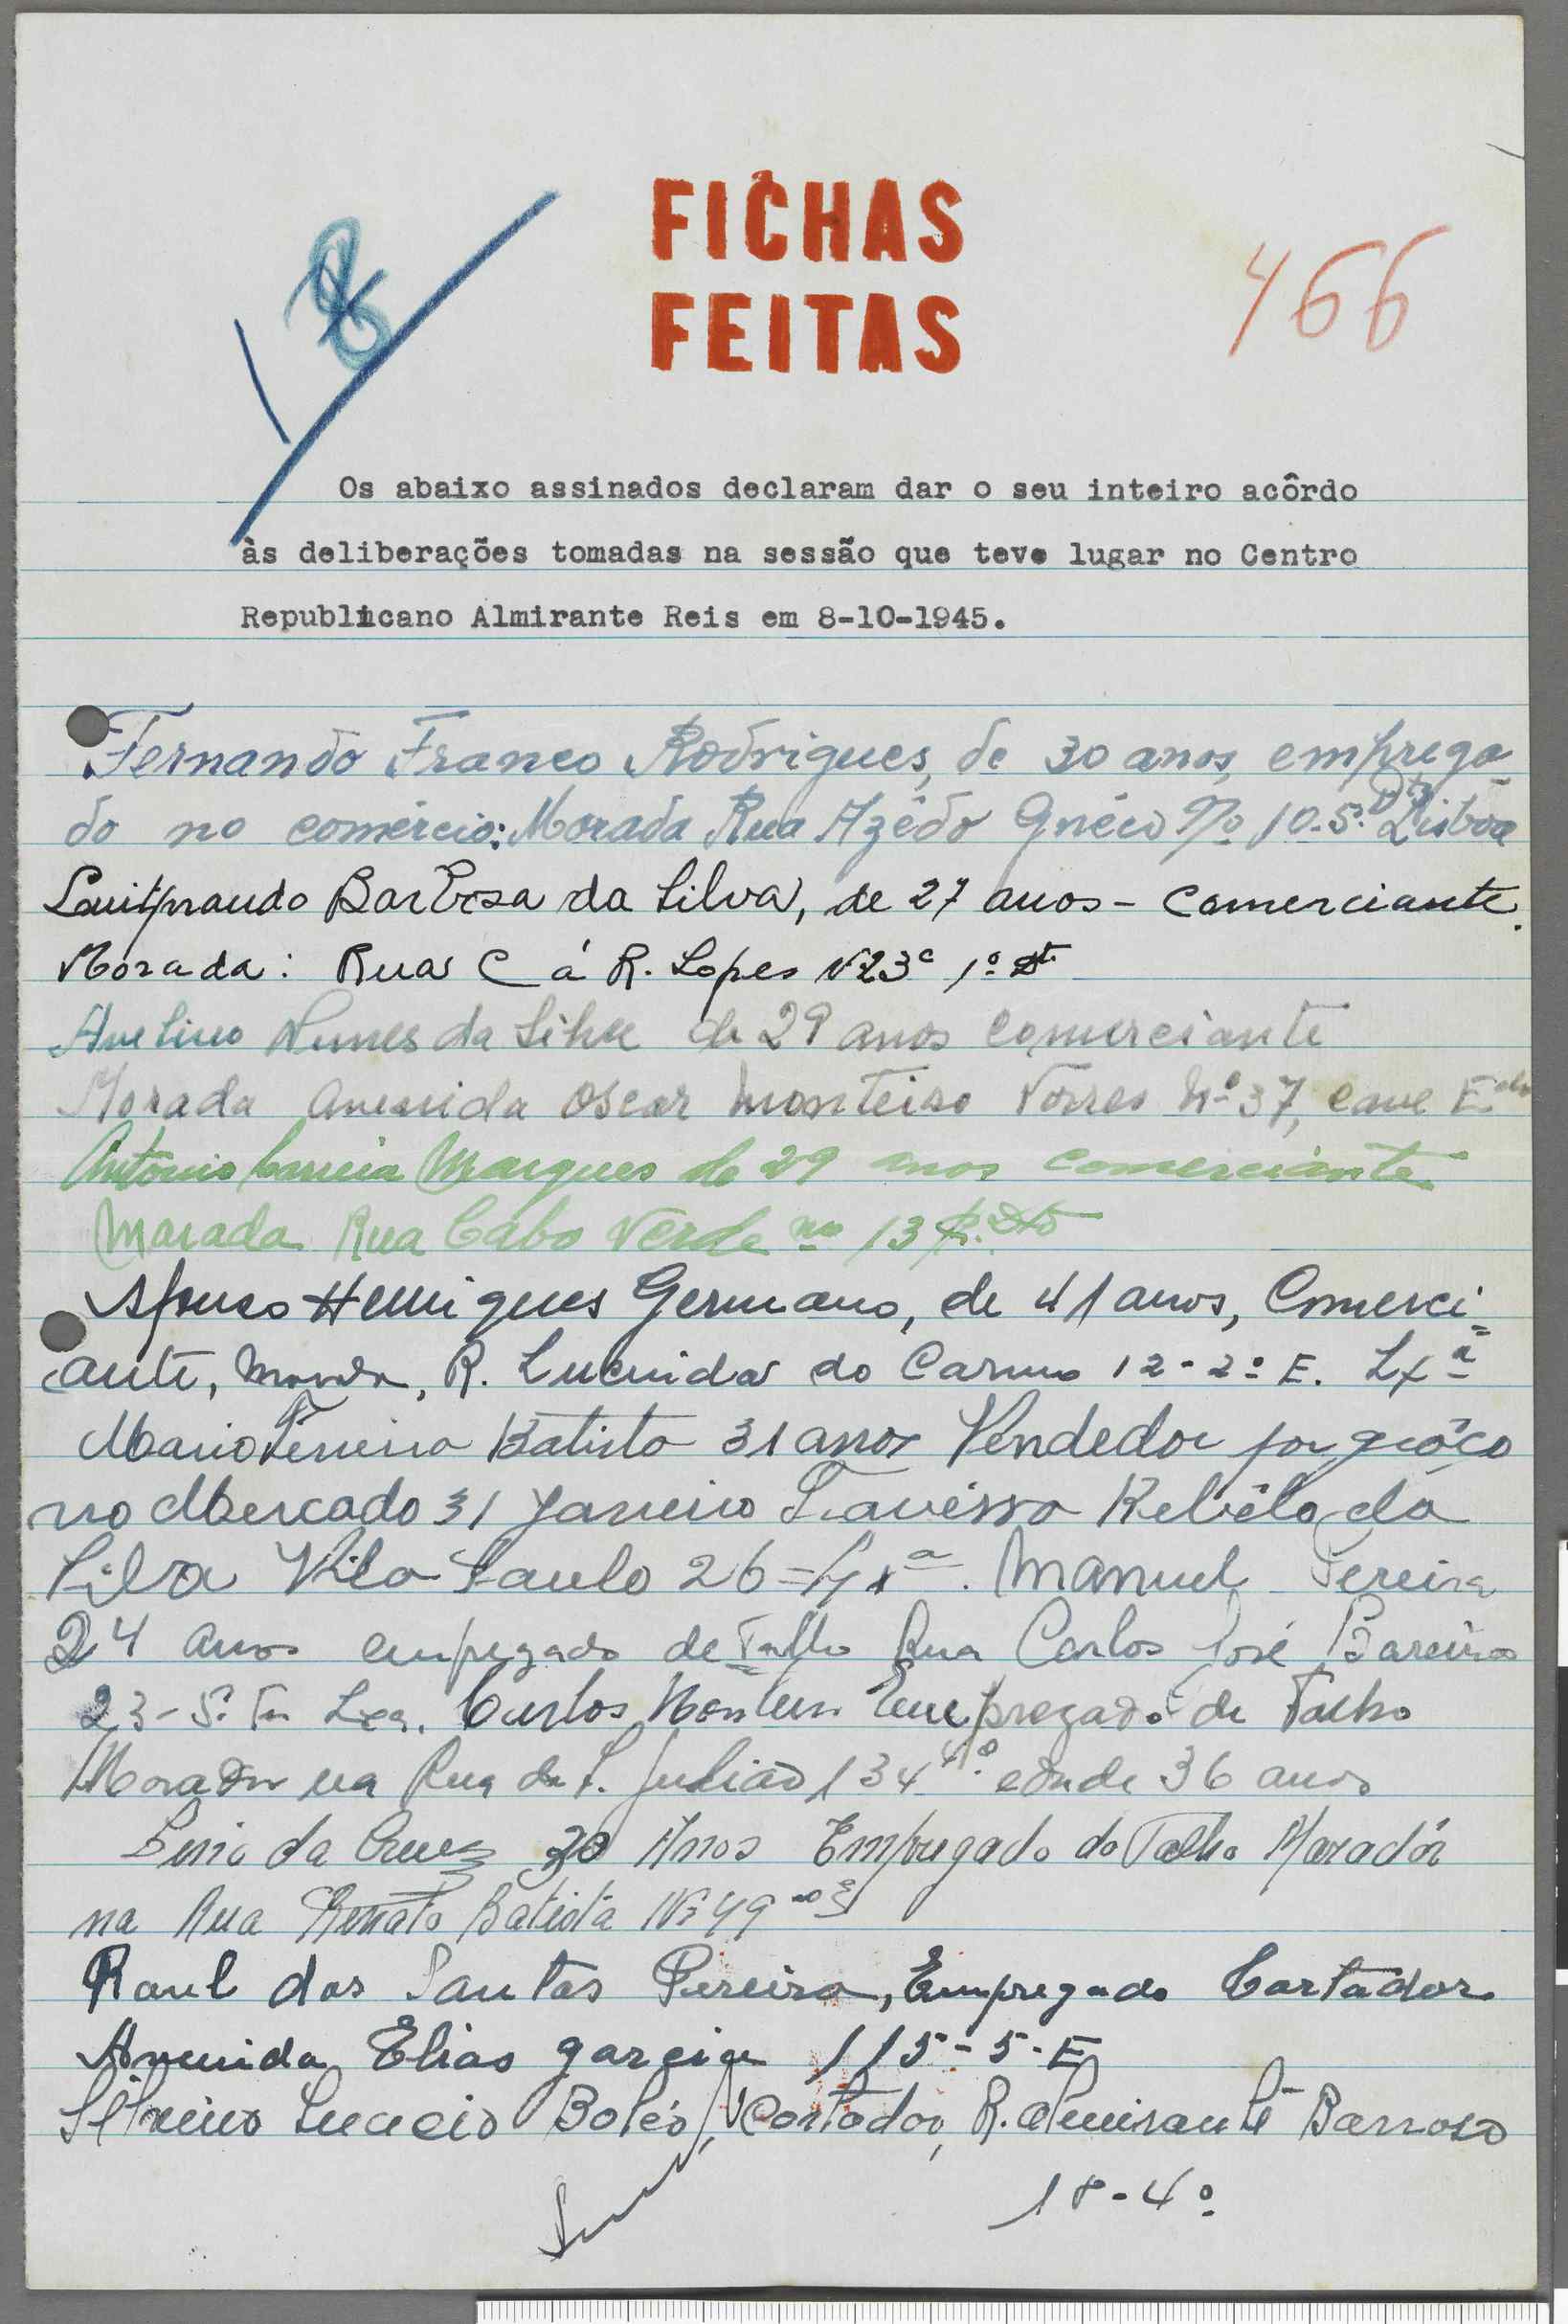 FICHAS
FEITAS
466
Os abaixo assinados declaram dar o seu inteiro acôrdo
às deliberações tomadas na sessão que teve lugar no Centro
Republicano Almirante Reis em 8-10-1945.
Fernando Franco Rodrigues, de 30 anos, emprega-
do no comércio: Morada Rua Azêdo Gnéco Nº 10-5º Dtº Lisboa
Luitprando Barbosa da Silva, de 27 anos - Comerciante.
Morada: Rua C á R. Lopes Nº 23 c 1º Dtº
Avelino Nunes da Silva de 29 anos comerciante
Morada Avenida Oscar Monteiro Torres Nº 37, cave
Antonio Correia Marques de 29 anos comerciante
Morada Rua Cabo Verde nº 13 R. Dtº
Afonso Henriques Germano, de 41 anos, Comerci-
ante, Morada, R. Lucinda do Carmo 12-2º E. Lxª
Mario Ferreira Batista 31 anos Vendedor por grôço
no Mercado 31 Janeiro Travéssa Rebêlo da
Silva Vila Paulo 26 = Lxª. Manuel Pereira
24 anos empregado de Talho Rua Carlos José Bareiros
23-5º Lxa. Carlos Empregado de Talho
Morador na Rua de S. Julião 134 4º edade 36 anos
da Cruz 30 Anos Empregado do Talho Moradôr
na Rua Renato Batista Nº 49
Raul dos Santos Pereira, Empregado Cortador
Avenida Elias garcia 115-5-E
Lucacio Cortador, R. Almirante Barroso
18-4º